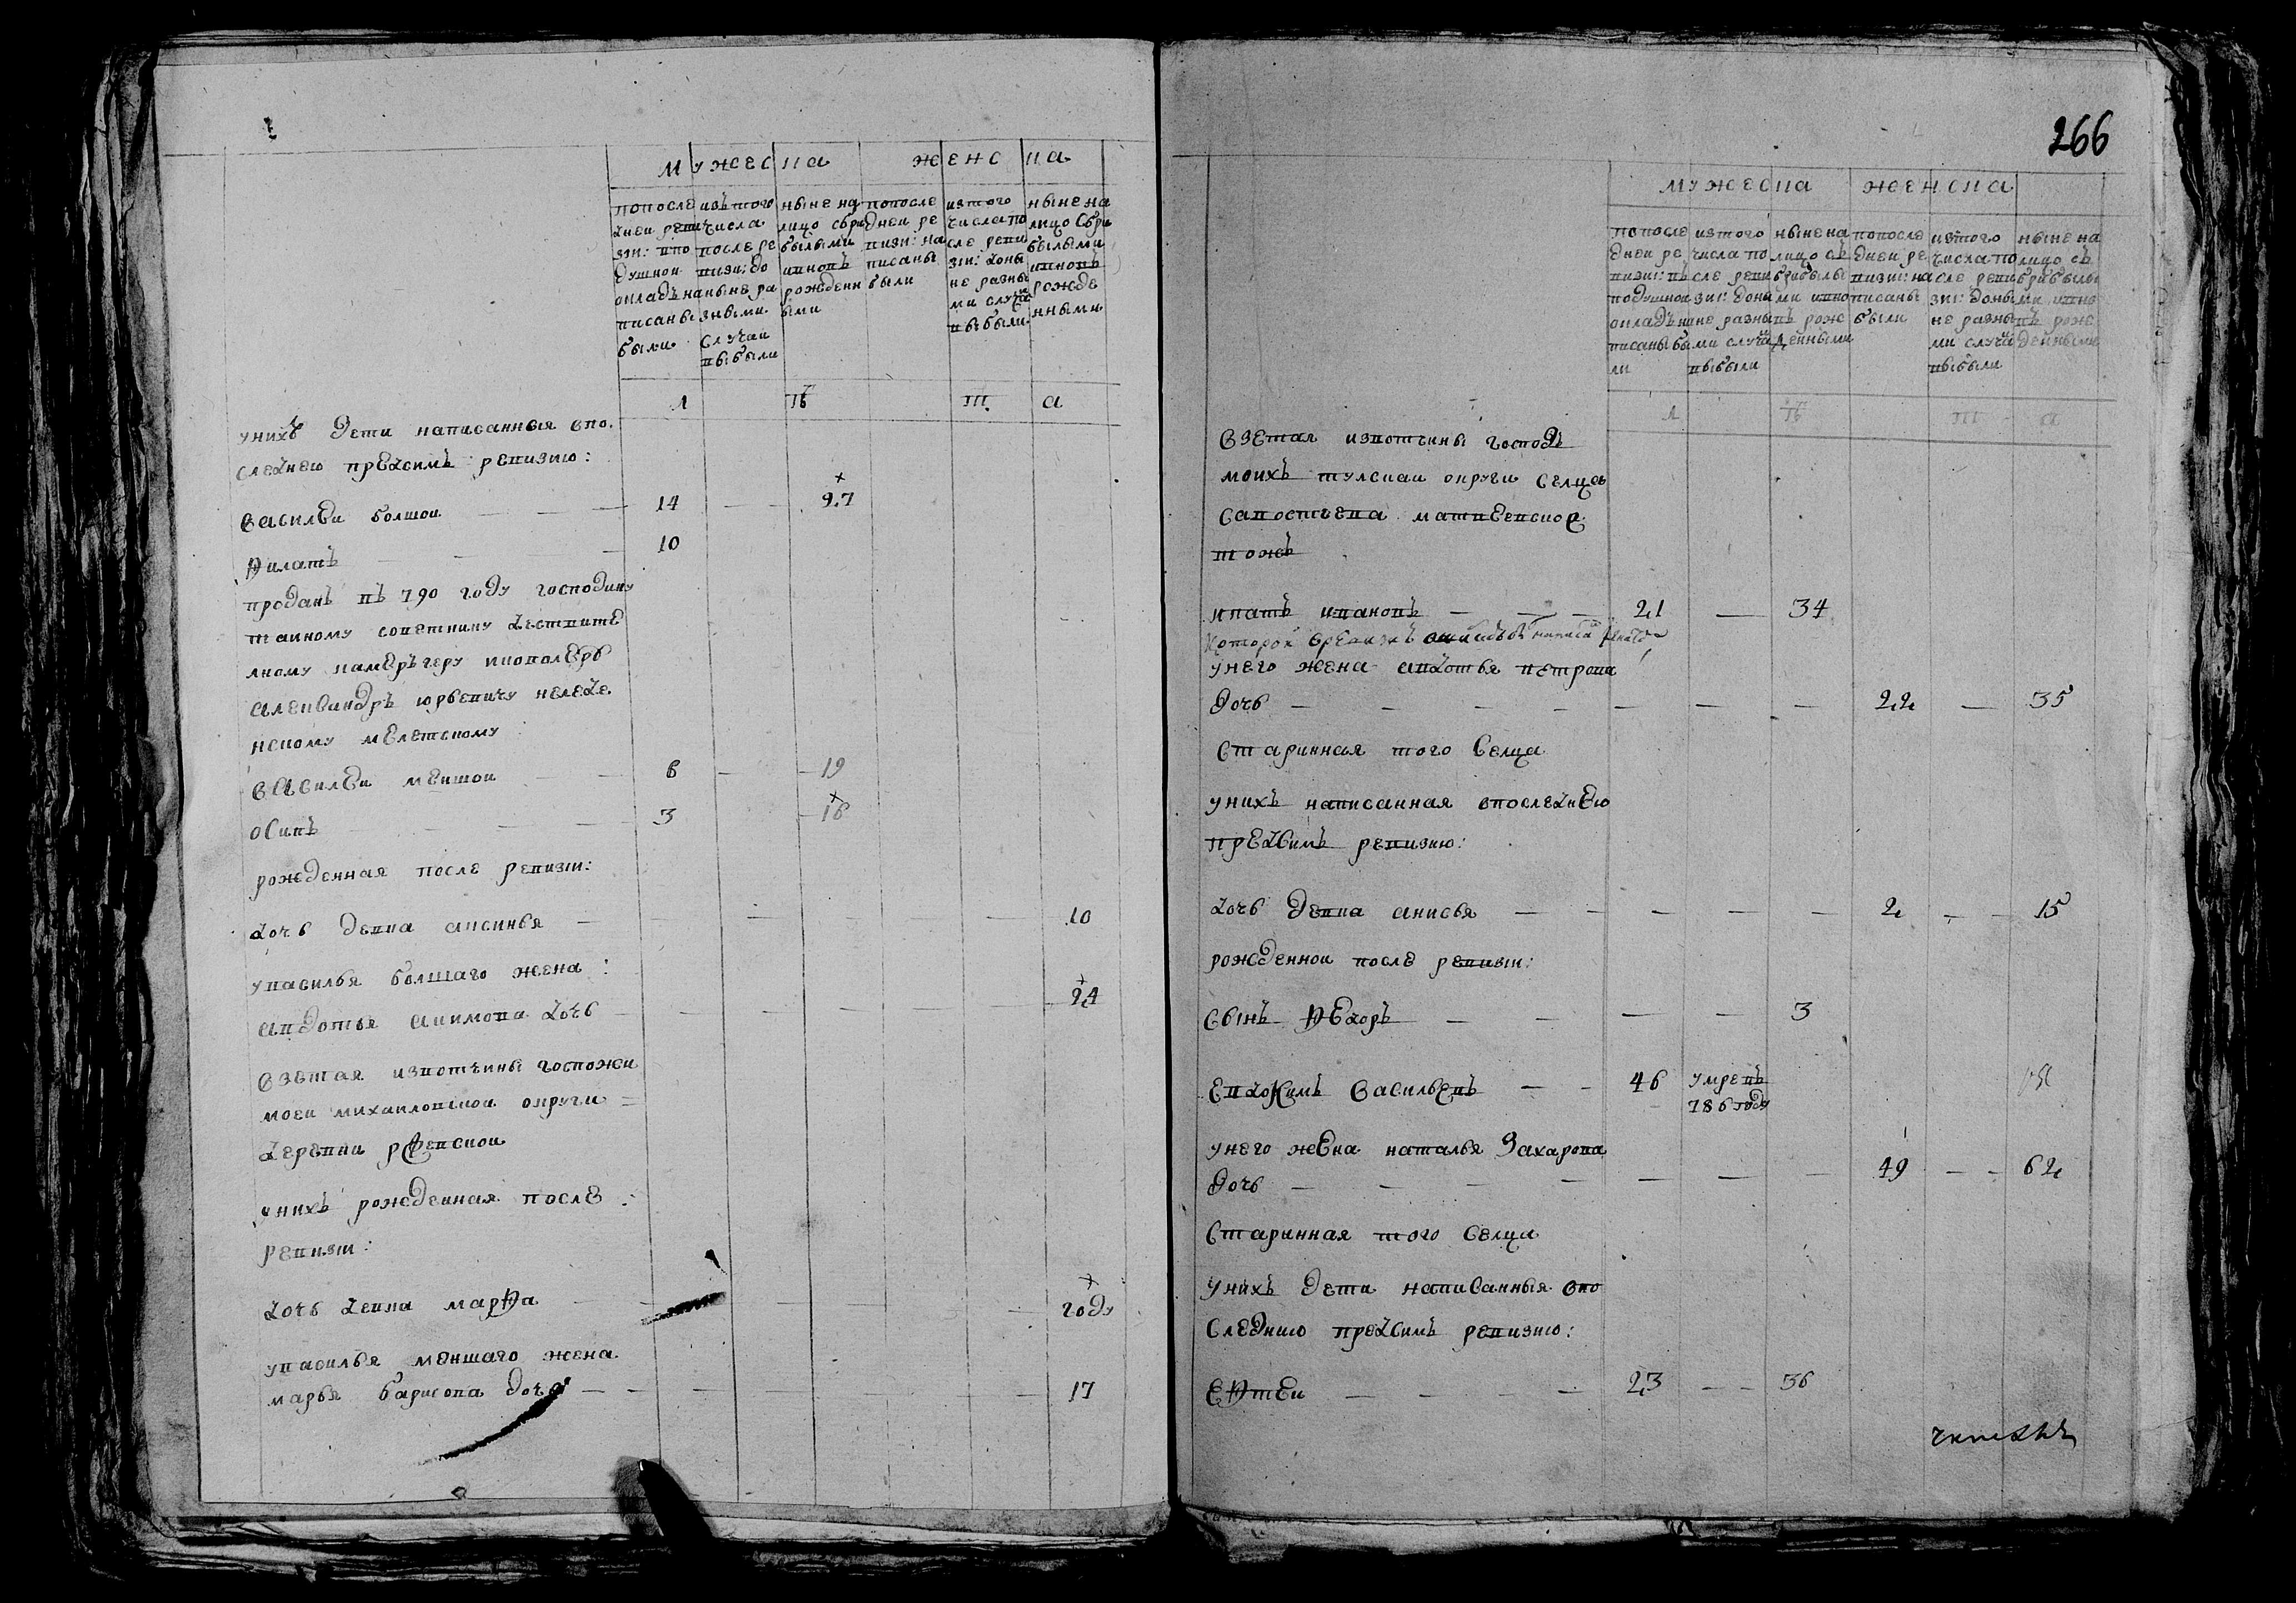 266
мужеска женска
попосле дней ревизіи въ подушной окладъ написаны были
изътого числа после ревизіи доныне разными случаи выбыли
ныне на лицо сприбылыми ивновь рожденными
попосле дней ревизіи написаны были
изтого числа после ревизіи доныне разными случаи выбыли
ныне на лицо сприбылыми ивновь рожденными
л ѣ т а
унихъ дети написанныя впо
следнею предсимъ ревизию:
василей болшои 14 27
Филатъ 10
проданъ въ 790 году господину
таиному советнику действите
лному камеръгеру икавалеру
александръ юрьевичу нелединскому мелетскому
василеи меншои 6 19
осипъ 3 16
рожденная после ревизіи:
дочь девка аксинья 10
увасилья болшаго жена:
авдотья акимова дочь 24
взетая извотчины госпожи
моей михаиловской округи
деревни
унихъ рожденная после
ревизіи:
дочь девка марфа году
увасилья меншаго жена
марья барисова дочь 17
мужеска женска
попосле дней ревизіи въ подушной окладъ написаны были
изтого числа после ревизіи доныне разными случаи выбыли
ныне на лицо съ прибылыми ивновь рожденными
попосле дней ревизіи написаны были
изтого числа после ревизіи доныне разными случаи выбыли
ныне на лицо съ прибылыми ивновь рожденными
л ѣ т а
взетая извотчины господъ
моихъ тулскаи округи селца
сапостьева матвеевское
тожъ
ипатъ ивановъ 21 34
которой
унего жена авдотья петрова
дочь 22 35
старинная того селца
унихъ написанная впоследнею
предсимъ ревизию:
дочь девка анисья 2 15
рожденной после ревизіи:
сынъ Федоръ 3
евдокимъ васильевъ 46 умревъ
786 году
унего жена наталья захарова
дочь 49 62
старинная того селца
унихъ дети написанныя впо
следнию предсимъ ревизию:
ефтеи 23 36